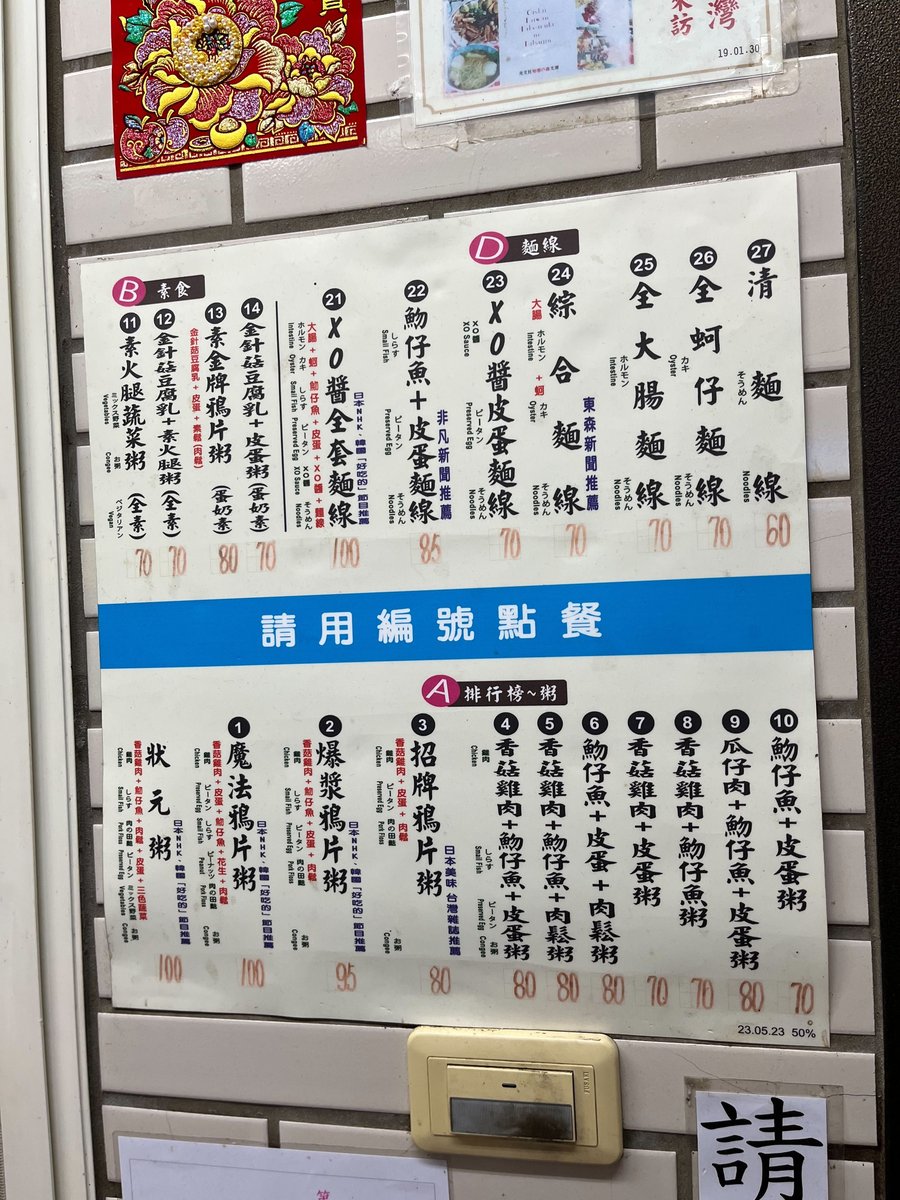 灣
來訪
19.01.30
D 麵線
27 清麵線
そうめん
Noodles
60
26 全蚵仔麵線
カキ
Oyster
そうめん
Noodles
70
25 全大腸麵線
ホルモン
Intestine
そうめん
Noodles
70
東森新聞推薦
24 綜合麵線
大腸+蚵
ホルモン カキ
Intestine Oyster
そうめん
Noodles
70
23 XO醬皮蛋麵線
XO醬 ピータン そうめん
XO Sauce Preserved Egg Noodles
70
非凡新聞推薦
22 魩仔魚+皮蛋麵線
しらす ピータン そうめん
Small Fish Preserved Egg Noodles
85
日本NHK.韓國「好吃的」節目推薦
21 XO醬全套麵線
大腸+蚵+魩仔魚+皮蛋+XO醬+麵線
ホルモン カキ しらす ピータン XO醬 そうめん
Intestine Oyster Small Fish Preserved Egg XO Sauce Noodles
100
B 素食
14 金針菇豆腐乳+皮蛋粥(蛋奶素)
70
13 素金牌鴉片粥(蛋奶素)
金針菇豆腐乳+皮蛋+素鬆(肉鬆)
80
12 金針菇豆腐乳+素火腿粥(全素)
70
11 素火腿蔬菜粥(全素)
ミックス野菜 お粥 ベジタリアン
Vegetables Congee Vegan
70
請用編號點餐
A 排行榜~粥
10 魩仔魚+皮蛋粥
70
9 瓜仔肉+魩仔魚+皮蛋粥
80
8 香菇雞肉+魩仔魚粥
70
7 香菇雞肉+皮蛋粥
70
6 魩仔魚+皮蛋+肉鬆粥
80
5 香菇雞肉+魩仔魚+肉鬆粥
80
4 香菇雞肉+魩仔魚+皮蛋粥
雞肉 しらす ピータン お粥
Chicken Small Fish Preserved Egg Congee
80
日本美味 台灣雜誌推薦
3 招牌鴉片粥
香菇雞肉+皮蛋+肉鬆
雞肉 ピータン 肉の田麩 お粥
Chicken Preserved Egg Pork Floss Congee
80
日本NHK.韓國「好吃的」節目推薦
2 爆漿鴉片粥
香菇雞肉+魩仔魚+皮蛋+肉鬆
雞肉 しらす ピータン 肉の田麩 お粥
Chicken Small Fish Preserved Egg Pork Floss Congee
95
日本NHK.韓國「好吃的」節目推薦
1 魔法鴉片粥
香菇雞肉+皮蛋+魩仔魚+花生+肉鬆
雞肉 ピータン しらす ピーナッツ 肉の田麩 お粥
Chicken Preserved Egg Small Fish Peanut Pork Floss Congee
100
日本NHK.韓國「好吃的」節目推薦
狀元粥
香菇雞肉+魩仔魚+肉鬆+皮蛋+三色蔬菜
雞肉 しらす 肉の田麩 ピータン ミックス野菜 お粥
Chicken Small Fish Pork Floss Preserved Egg Vegetables Congee
100
23.05.23 50%
請